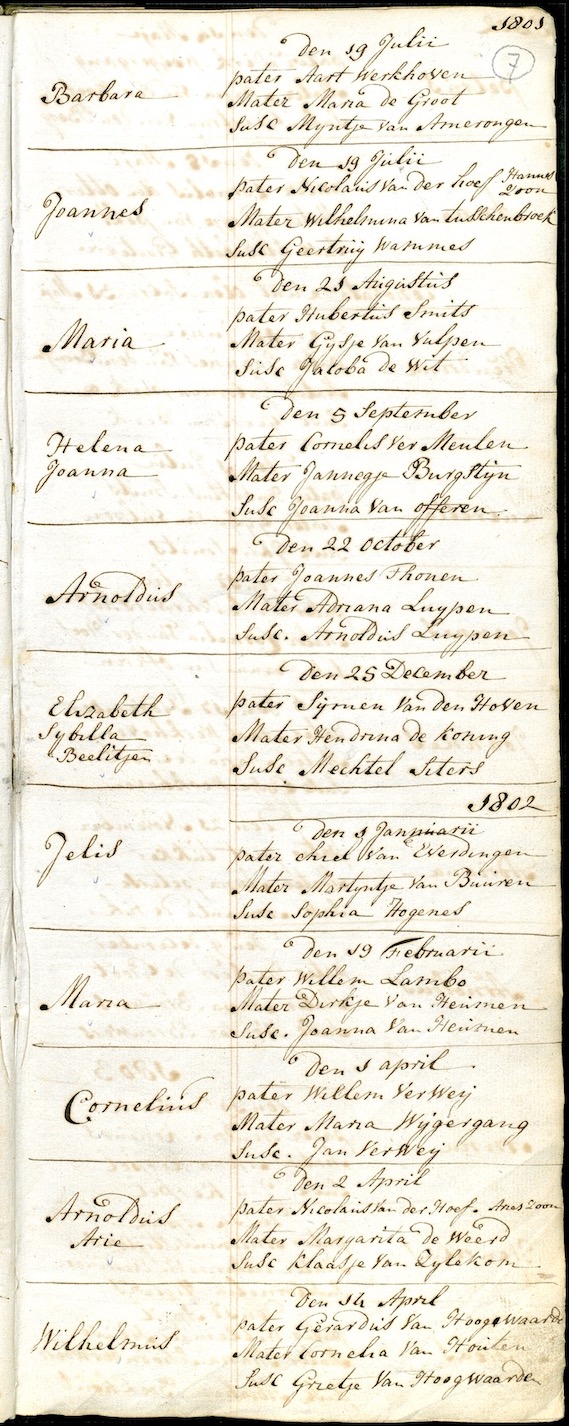 1801
7
Den 19 Julii
Barbara
pater Aart Werkhoven
Mater Maria de Groot
Susc Myntje Van Amerongen
Den 19 Julii
Joannes
pater Nicolaus Van der hoef Hannes Zoon
Mater Wilhelmina Van tusschenbroek
Susc Geertruy Wammes
Den 21 Augustus
Maria
pater Hubertus Smits
Mater Gysje Van Vulpen
Susc Jacoba de Wit
Den 5 September
Helena
Joanna
pater Cornelis Ver Meulen
Mater Jannegje Burgstyn
Susc Joanna Van offeren
Den 22 October
Arnoldus
pater Joannes Thonen
Mater Adriana Luypen
Susc. Arnoldus Luypen
Den 25 December
Elizabeth
Sybilla
Beelitjen
pater Symen Van den Hoven
Mater Hendrina de Koning
Susc Mechtel Siters
1802
Den 9 Januarii
Jelis
pater chiel Van Everdingen
Mater Martyntje Van Buuren
Susc Sophia Hogenes
Den 19 Februarii
Maria
pater Willem Lambo
Mater Dirkje Van Heumen
Susc. Joanna Van Heumen
Den 1 april
Cornelius
pater Willem Ver Weij
Mater Maria Wijgergang
Susc. Jan Verweij
Den 2 April
Arnoldus
Arie
pater Nicolaus Van der Hoef. Aries Zoon
Mater Margarita de Weerd
Susc Klaasje Van Zylekom
Den 14 April
Wilhelmus
pater Gerardus Van Hoogewaarde
Mater Cornelia Van Houten
Susc Grietje Van Hoogwaarden